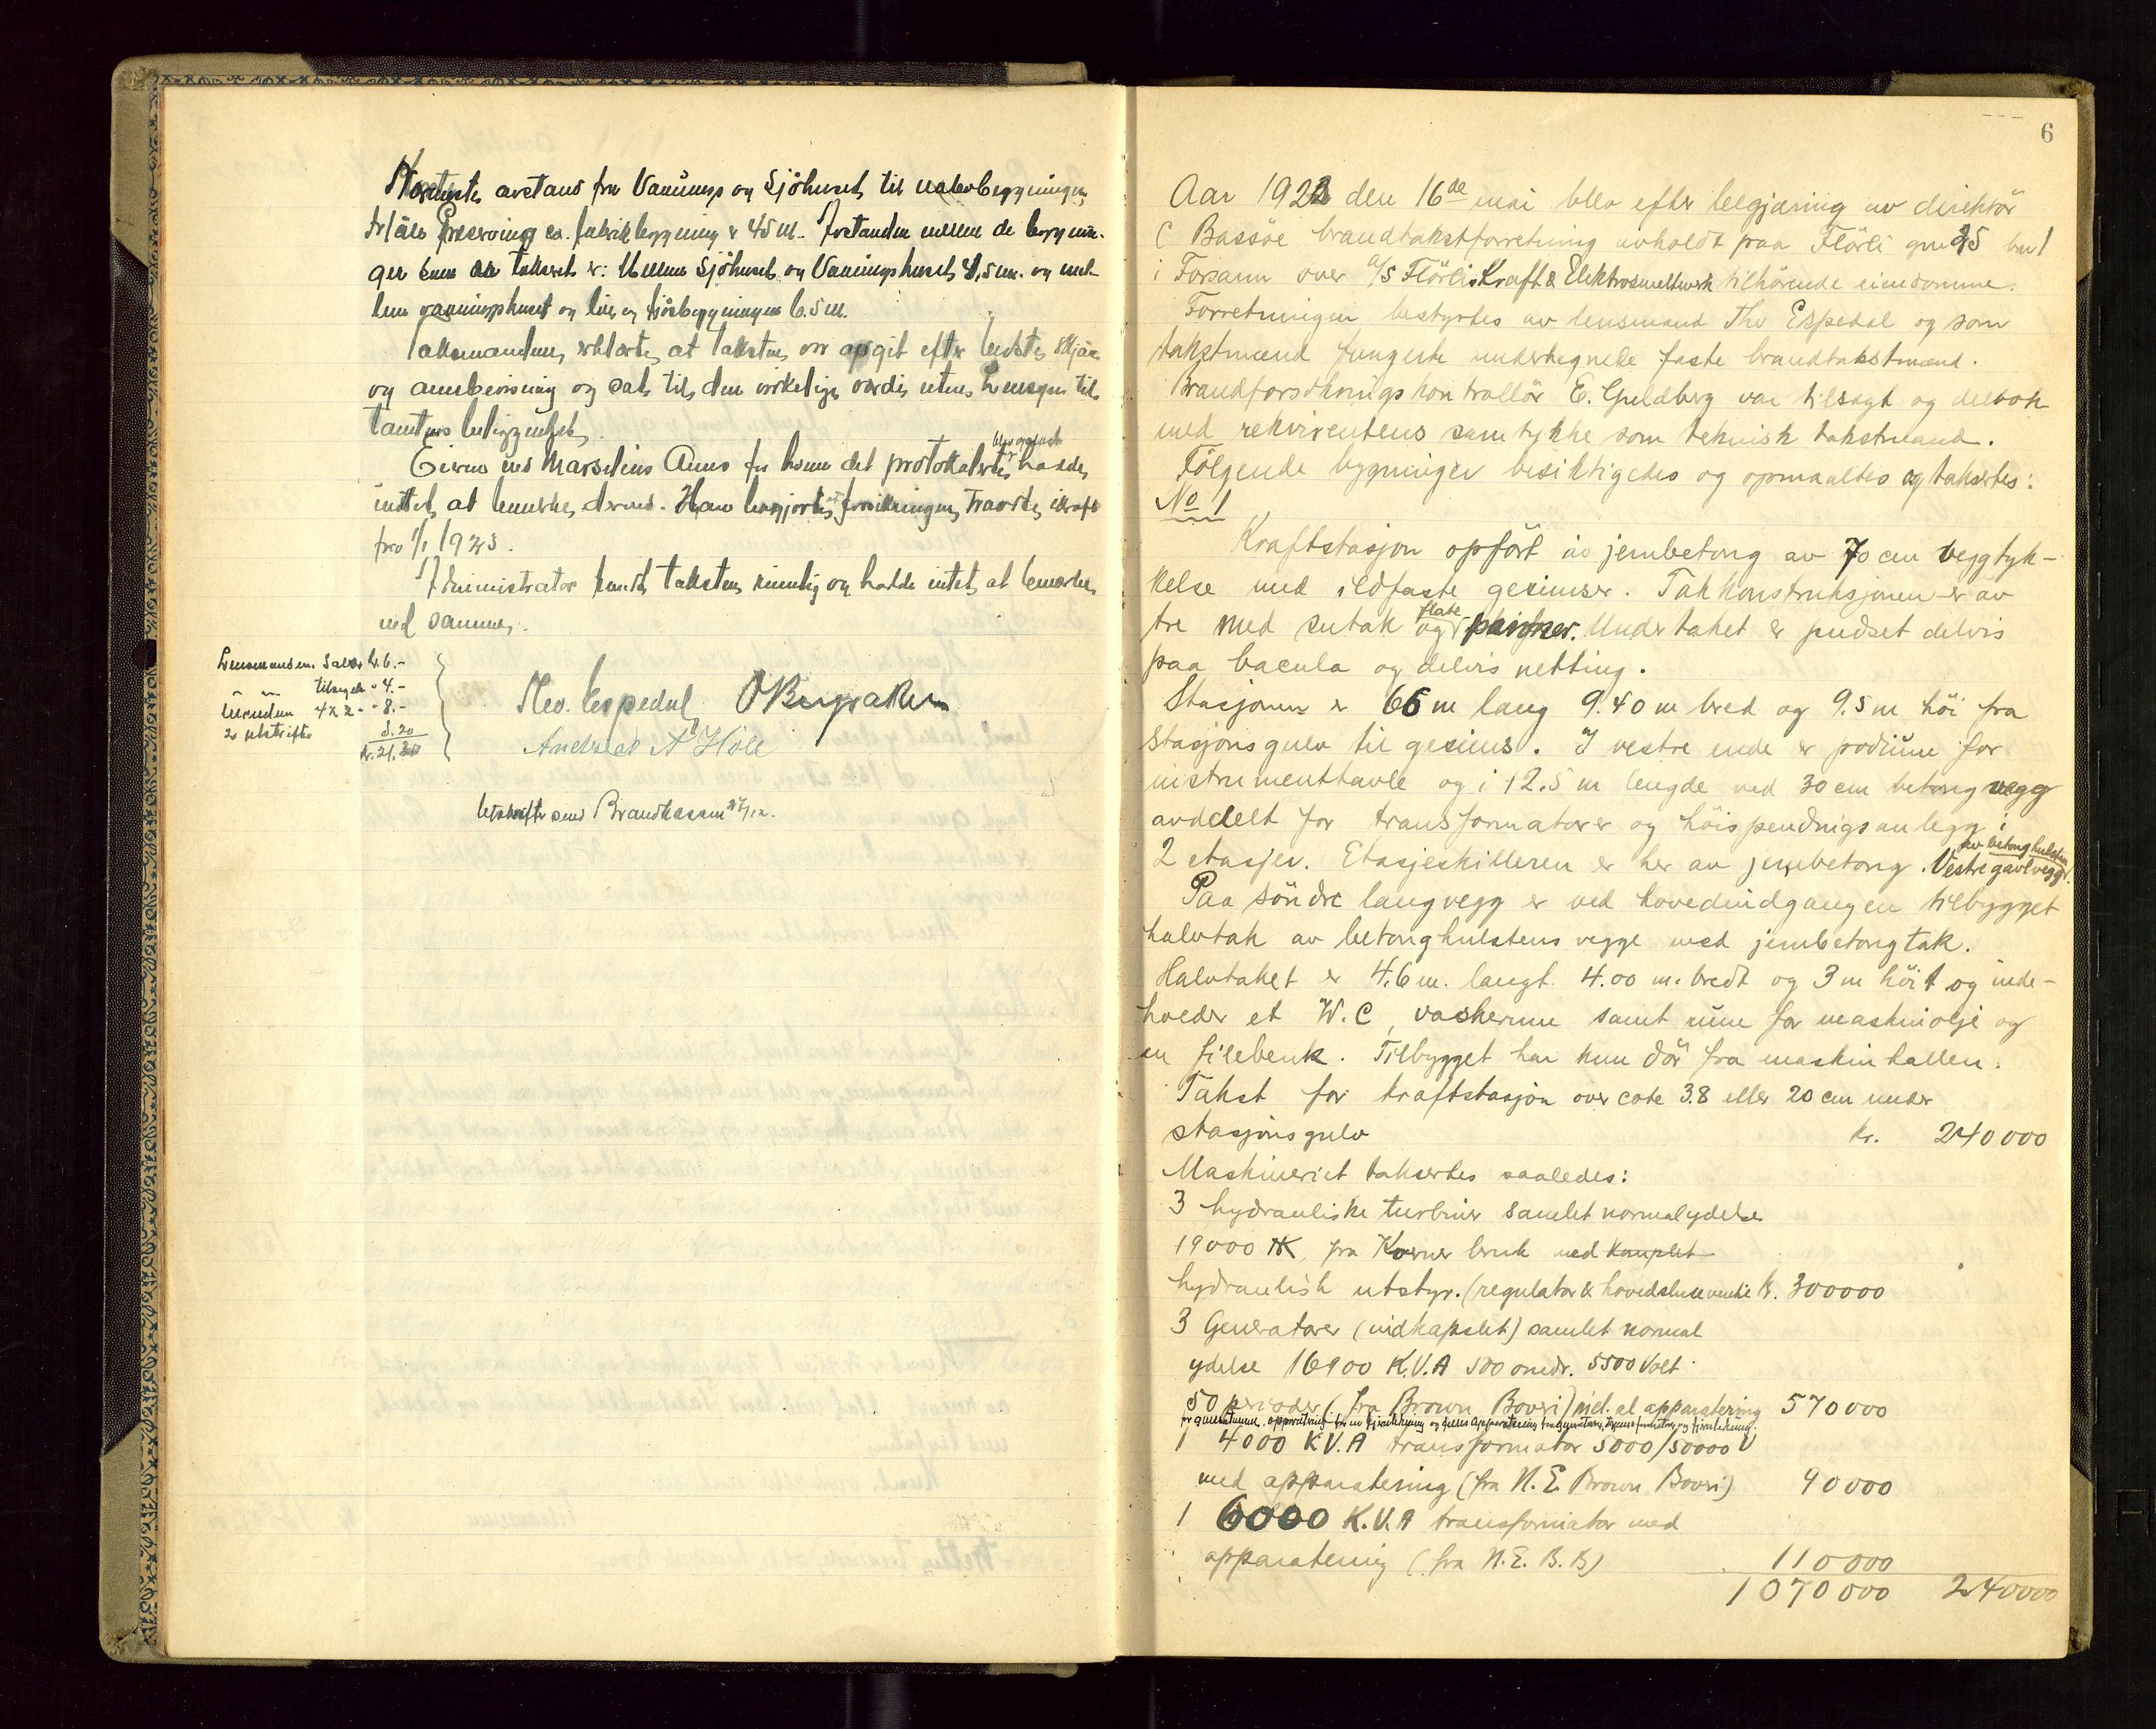 Korteste avstand fra Vaanings og Sjöhuset til nabobygningen
tilhör Preserving co. fabrikbygning er 45 m. Avstanden mellem de bygnin-
ger som er taksert er: Mellem Sjöhuset og Vaaningshuset 4,5 m. og mel-
lem vaaningshuset og löe og fjösbygningen 6.5 m.
Taksmændene erklærte at taksten var avgit efter bedste skjön
og overbevisning og sat til den virkelige værdi uten hensyn til
tomtens beliggenhet.
Eieren Marselius Aano for hvem det protokolerte blev oplæst hadde
intet at bemerke derved. Han begjærte at forsikringen traadte ikraft
fra 1/1 1923.
Administrator fandt taksten rimelig og hadde intet at bemerke
ved samme.
Lensmanden Salær kr. 6.-
" " tilsyn " 4.-
Mændene 4 x 2 - " 8.-
2 utskrifter 3.20
Kr. 21.20
Theo. Espedal O Bergsaker
Andreas A Höle
Utskrift send Brandkassen 27/12.
6
Aar 1922 den 16de mai blev efter begjæring av direktör
C Bassöe brandtakstforretning avholdt paa Flörli gnr 25 bnr 1
i Forsann over A/S Flörli Kraft & Elektrosmelteverk tilhörende eiendomme.
Forretningen bestyrtes av lensmand Thv Espedal og som
takstmænd fungerte undertegnede faste brandtakstmænd.
Brandforsikringskontrollör E. Guldberg var tilsagt og deltok
med rekvirentens samtykke som teknisk takstmand.
Fölgende bygninger besiktigedes og opmaaltes og taksertes:
No 1
Kraftstasjon opfört av jernbetong av 70 cm veggtyk-
kelse med ildfaste gesimser. Takkonstruksjonen er av
tre med sutak og flate panner. Undertaket er pudset delvis
paa bacula og delvis netting.
Stasjonen er 66 m lang 9.40 m bred og 9.5 m höi fra
stasjonsgulv til gesims. I vestre ende er podium for
instrumenttavle og i 12.5 m lengde ved 30 cm betong vegg
avdelelt for transformatorer og höispendnigsanlegg i
2 etasjer. Etasjeskilleren er her av jernbetong. Vestre gavlvegg av betonghulsten.
Paa söndre langvegg er ved hovedindgangen tilbygget
halvtak av betonghulstens vegge med jernbetongtak.
Halvtaket er 4.6 m. langt 4.00 m. bredt og 3 m höit og inde-
holder et W.C, vaskerum samt rum for maskinolje og
en filebenk. Tilbygget har kun dör fra maskinhallen.
Takst for kraftstasjon over cote 3.8 eller 20 cm under
stasjonsgulv kr. 240000
Maskineriet takseres saaledes:
3 hydrauliske turbiner samlet normalydelse
19000 HK. fra Kværner bruk med komplet
hydraulisk utstyr. (regulator & hovedsluseventil kr. 300000
3 Generatorer (indkapslet) samlet normal
ydelse 16900 K.V.A 500 omdr. 5500 Volt.
50 perioder (fra Brown Boveri) inkl. al apparatering 570000
for generatorene, apparatering for en fjernledning og felles apparatering for generatorer, transformator og fjernledning.
1 4000 K.V.A transformator 5000/50000 V
med apparatering (fra N. E. Brown Boveri) 90000
1 6000 K.V.A transformator med
apparatering (fra N. E. B. B) 110000
1070000 240000